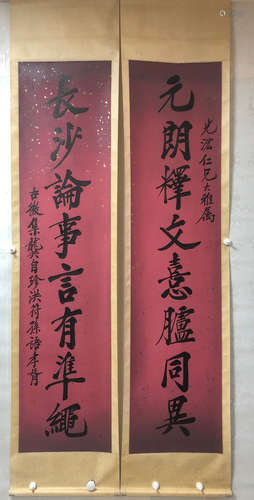 仁兄大雅属
元朗釋文憙臚同異
長沙論事言有準繩
古微集龔自珍洪符孫語孝臧